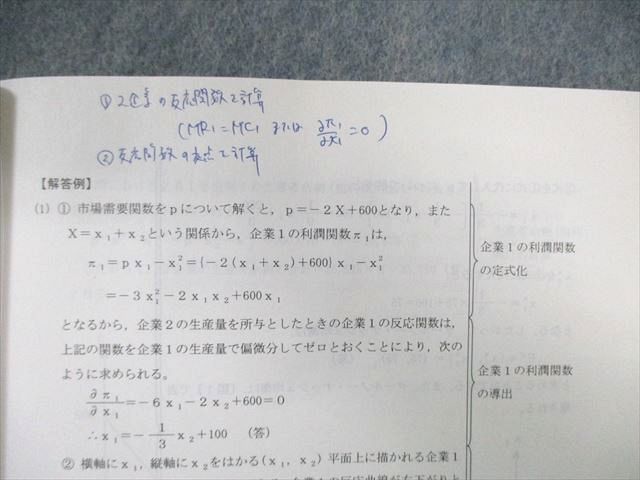 ① 2企業の反応関数を計算
(MR₁=MC₁ または ∂π₁/∂x₁=0)
② 反応関数の交点を計算
【解答例】
(1) ① 市場需要関数をpについて解くと，p＝－2X＋600となり，また
X＝x₁＋x₂という関係から，企業1の利潤関数π₁は，
π₁＝px₁－x₁²＝{－2(x₁＋x₂)＋600}x₁－x₁²
＝－3x₁²－2x₁x₂＋600x₁
企業1の利潤関数
の定式化
となるから，企業2の生産量を所与としたときの企業1の反応関数は，
上記の関数を企業1の生産量で偏微分してゼロとおくことにより，次の
ように求められる。
∂π₁/∂x₁＝－6x₁－2x₂＋600＝0
∴x₁＝－1/3x₂＋100 (答)
企業1の利潤関数
の導出
② 横軸にx₁，縦軸にx₂をはかる(x₁，x₂)平面上に描かれる企業1